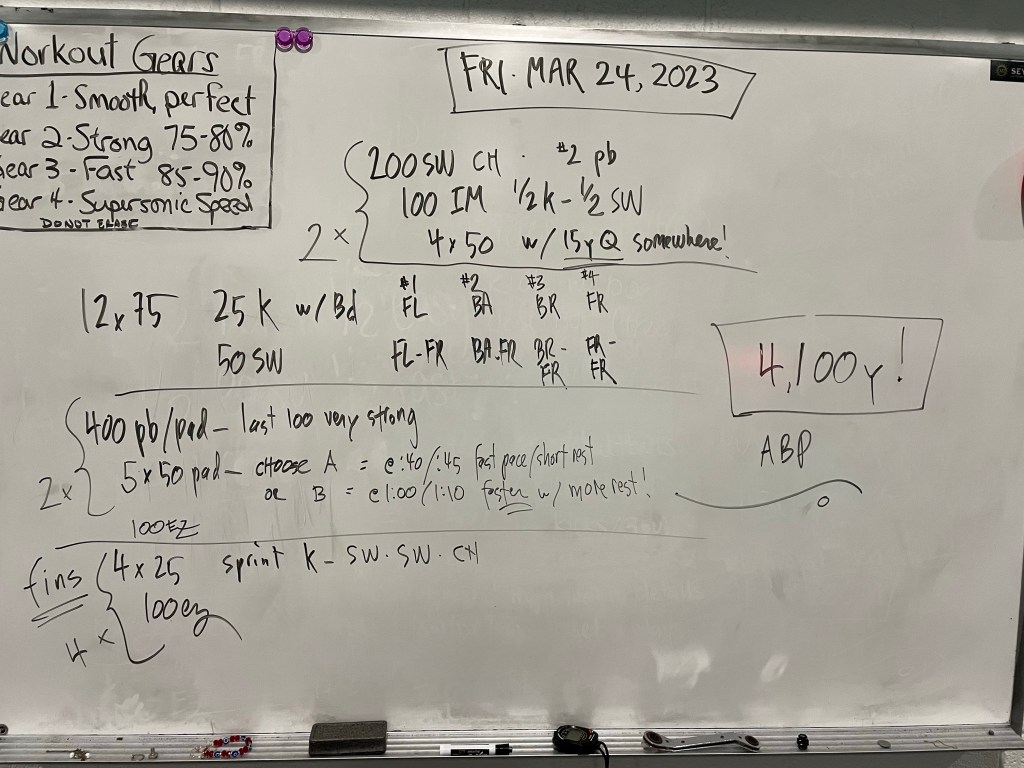 Workout Gears
ear 1-Smooth, perfect
ear 2-Strong 75-80%
Gear 3 - Fast 85-90%
gear 4 - Supersonic Speed
DO NOT ERASE
FRI. MAR 24, 2023
200 SW CH · #2 pb
100 IM 1/2 k - 1/2 SW
2x 4x50 w/ 15y Q somewhere!
#1 #2 #3 #4
12x75 25 K w/ Bd FL BA BR FR
50 SW FL-FR BA.FR BR-FR FR-FR
4,100y!
ABP
400 pb/pad - last 100 very strong
2x 5x50 pad - choose A = @:40/:45 fast pace/short rest
or B = @1:00/1:10 faster w/ more rest!
100 EZ
fins 4x25 sprint K - SW. SW. CH
4x 100 ez
SE